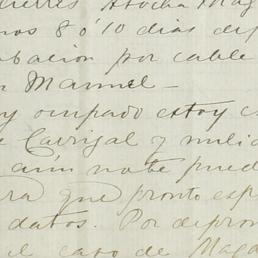 Atocha Mag
nos 8 ó 10 dias des
bacion por cable
n Manuel —
y ocupado estoy c
e Carrizal y mili
aun no te pued
ra que pronto esp
datos. Por de pron
el caso de Magd